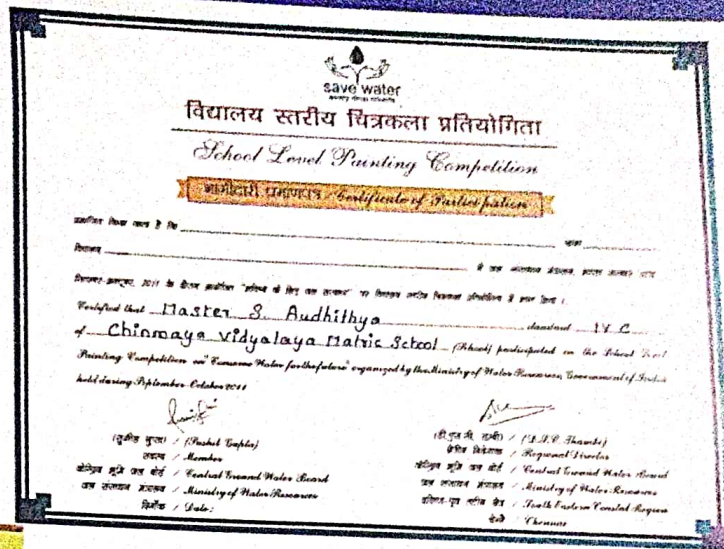 save water
विद्यालय स्तरीय चित्रकला प्रतियोगिता
School Level Painting Competition
भागीदारी प्रमाणपत्र Certificate of Participation
प्रमाणित किया जाता है कि कक्षा
विद्यालय ने जल संसाधन मंत्रालय, भारत सरकार द्वारा
सितम्बर-अक्टूबर, 2011 के दौरान आयोजित "भविष्य के लिए जल संरक्षण" पर विद्यालय स्तरीय चित्रकला प्रतियोगिता में भाग लिया ।
Certified that Master S. Audhithya standard IV C
of Chinmaya Vidyalaya Matric School (School) participated on the School Level
Painting Competition on "Conserve Water for the future" organized by the Ministry of Water Resources, Government of India
held during September-October 2011
(सुशील गुप्ता) / (Sushil Gupta)
सदस्य / Member
केन्द्रिय भूमि जल बोर्ड / Central Ground Water Board
जल संसाधन मंत्रालय / Ministry of Water Resources
दिनाँक / Date:
(डी.एस.सी. तम्बी) / (D.S.C. Thambi)
क्षेत्रिय निदेशक / Regional Director
केन्द्रिय भूमि जल बोर्ड / Central Ground Water Board
जल संसाधन मंत्रालय / Ministry of Water Resources
दक्षिण-पूर्व तटीय क्षेत्र / South Eastern Coastal Region
चेन्नै / Chennai